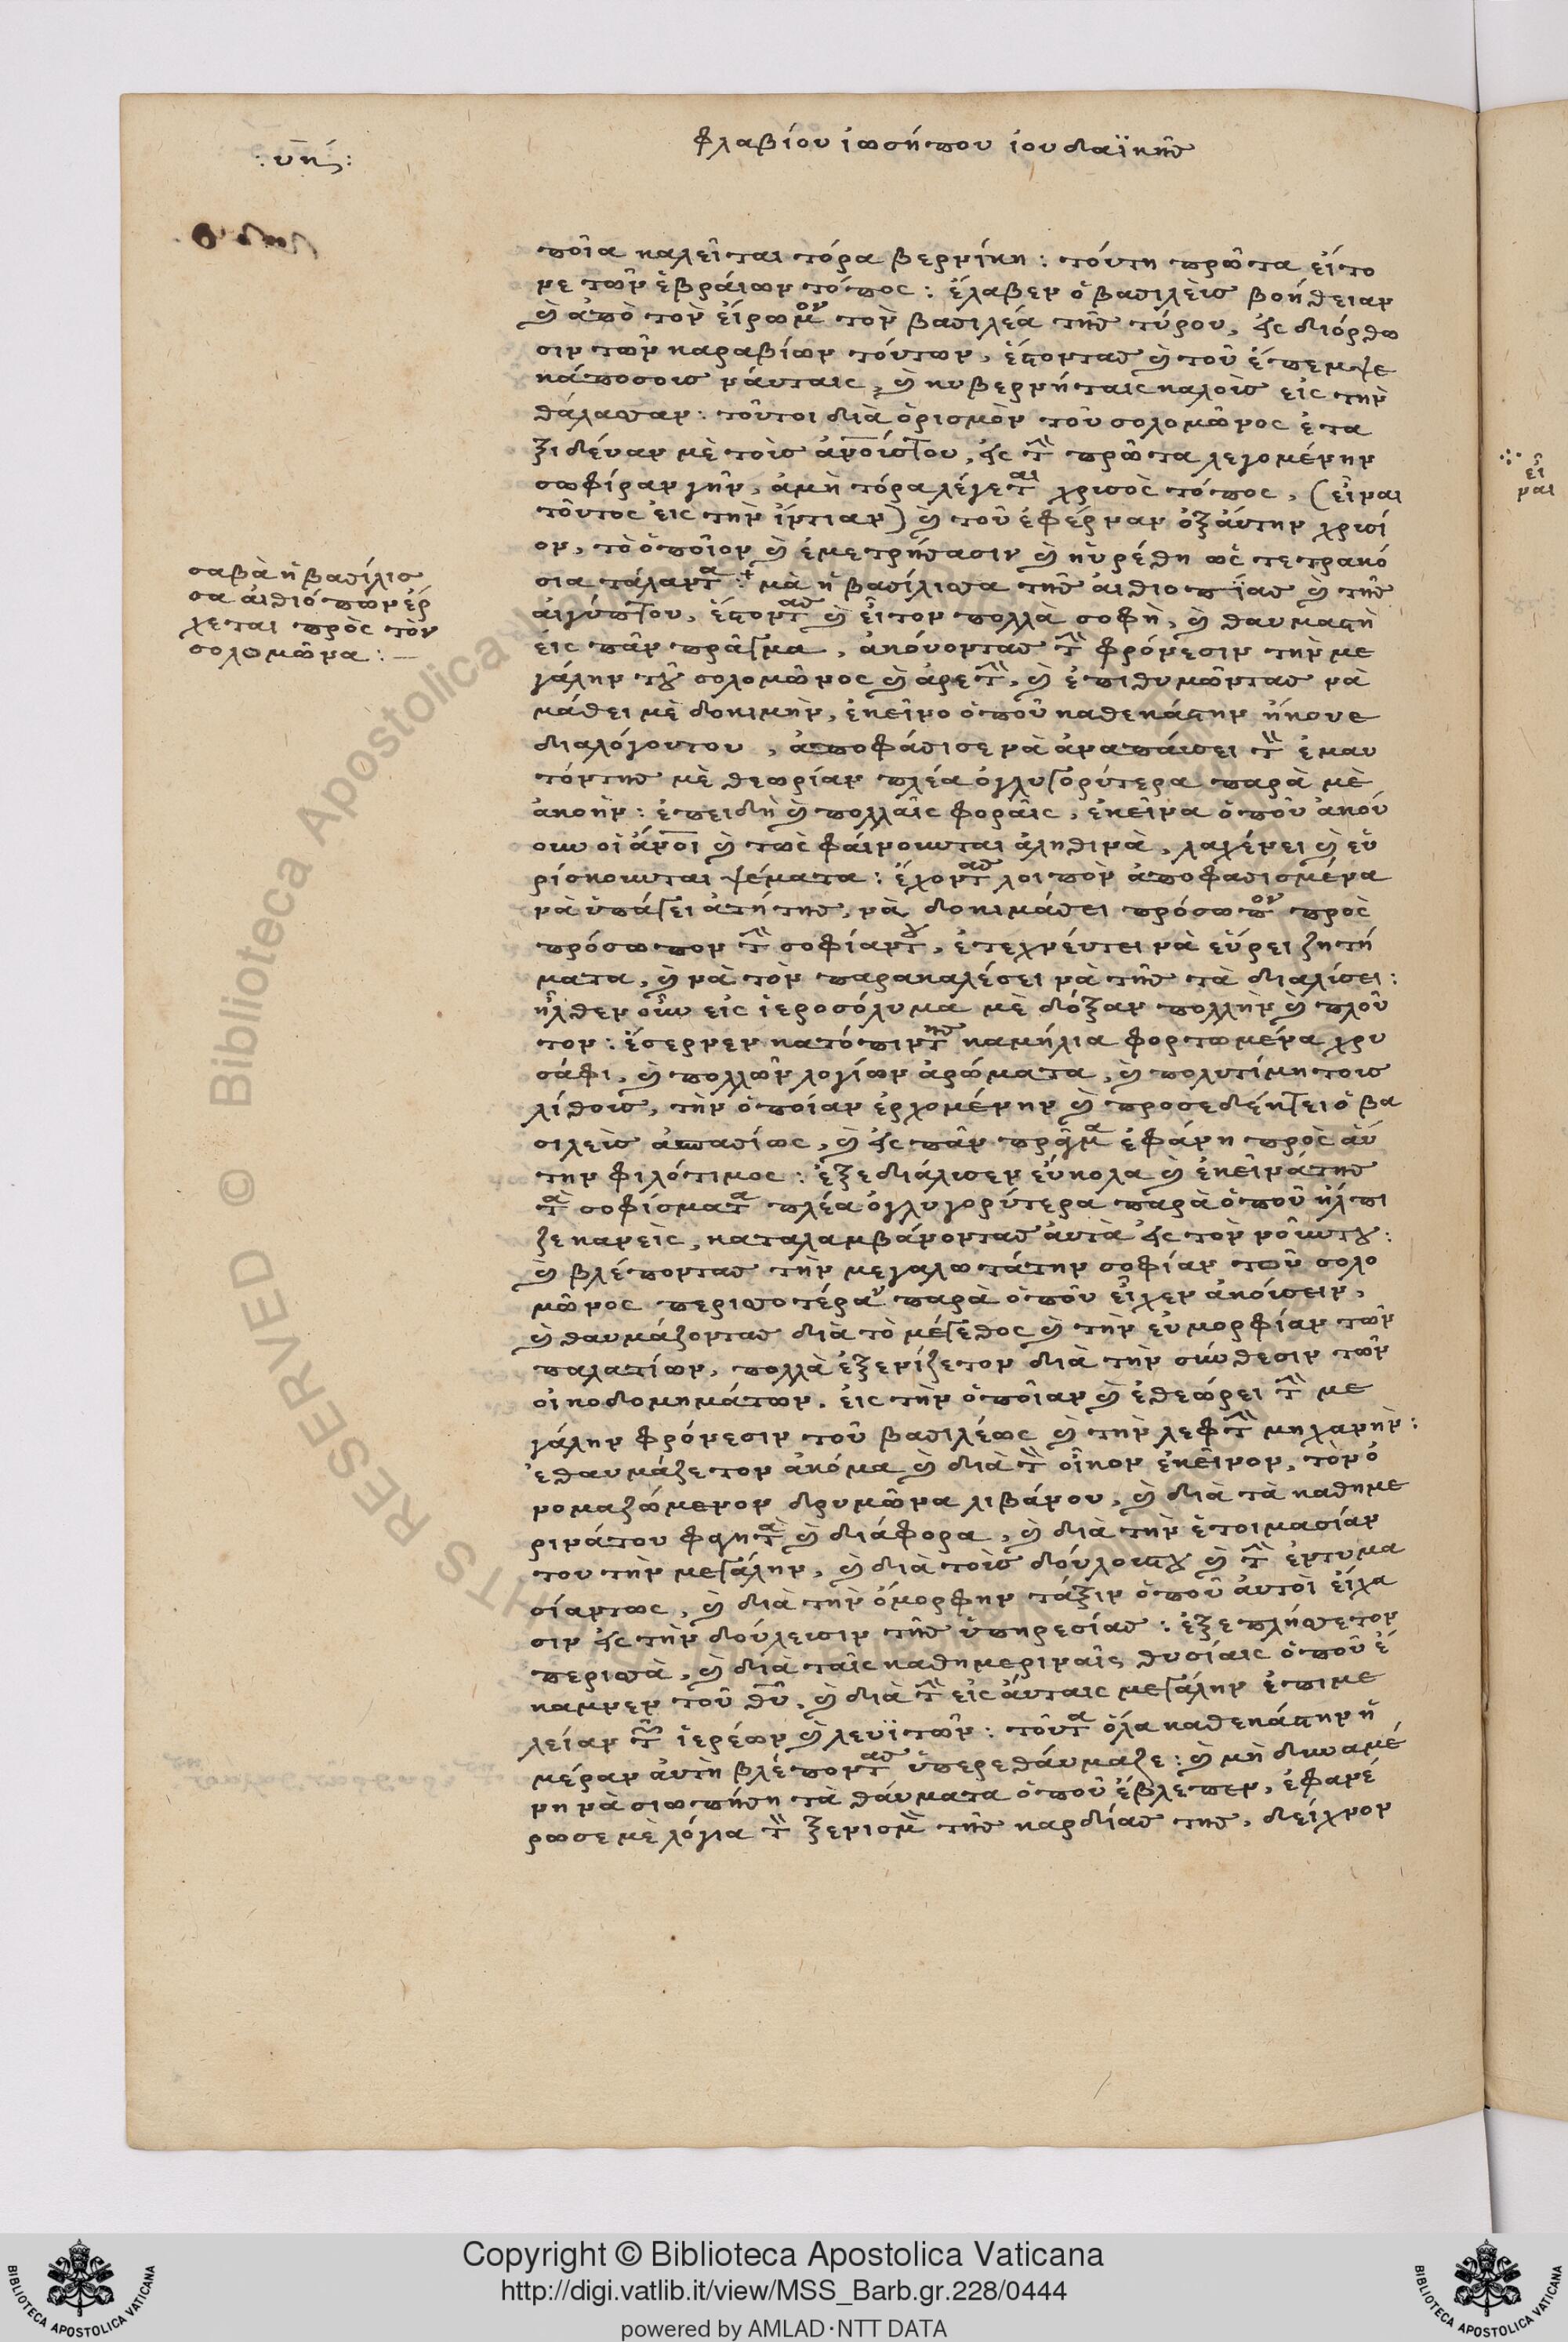 φλαβίου ἰωσήπου ἰουδαϊκῆς
: υ̅ν̅ς̅ :
ποῖα καλεῖται τόρα βερνίκη : τούτη πρῶτα εἴτο
νε τῶν ἑβράιων τόπος : ἔλαβεν ὁ βασιλεὺς βοήθειαν
ϗ ἀπὸ τὸν εἴρωμον τὸν βασιλέα τῆς τύρου, εἰς διόρθω
σιν τῶν καραβίων τόυτων, ἔχοντας ϗ τοῦ ἔπεμψε
κάποσους ναύταις, ϗ κυβερνήταις καλοὺς εἰς τὴν
θάλασσαν : τοῦτοι διὰ ὁρισμὸν τοῦ σολομῶνος ἐτα
ξιδέναν μὲ τοὺς ἀνοίστου, εἰς τὴν πρῶτα λεγομένην
σωφίραν γῆν, ἀμὴ τόρα λέγεται χρισὸς τόπος, (εἶναι
τοῦτος εἰς τὴν ἴντιαν) ϗ τοῦ ἐφέρναν ὀξάυτην χρισί
ον, τὸ ὁποῖον ϗ ἐμετρήθασιν ϗ ηὑρέθη ὡς τετρακό
σια τάλαντα : μὰ ἡ βασίλισσα τῆς ἀιθιοπίας ϗ τῆς
αἰγύπτου, ἔχοντας ϗ εἶτον πολλὰ σοφὴ, ϗ θαυμαστὴ
εἰς πᾶν πρᾶγμα, ἀκούοντας τὴν φρόνεσιν τὴν με
γάλην τοῦ σολομῶνος ϗ ἀρετὴν, ϗ ἐπιθυμῶντας νὰ
μάθει μὲ δοκιμὴν, ἐκεῖνο ὁποῦ καθεκάστην ἤκουε
διαλόγουτου, ἀποφάσισε νὰ ἀναπάυσει τὴν ἐμαυ
τόντης μὲ θεωρίαν πλέα ὀγλυγορύτερα παρὰ μὲ
ἀκοὴν : ἐπειδὴ ϗ πολλᾶις φορᾶις, ἐκεῖνα ὁποῦ ἀκού
ουν οἱ ἄνοι ϗ τῶς φάινουνται ἀληθινὰ, λαχένει ϗ εὑ
ρίσκουνται ψέματα : ἔχοντας λοιπὸν ἀποφασισμένα
νὰ ὑπάγει ἀτήτης, νὰ δοκιμάσει πρόσωπον πρὸς
πρόσωπον τὴν σοφίαντου, ἐτεχνέυτει νὰ εὕρει ζητή
ματα, ϗ νὰ τὸν παρακαλέσει νὰ τῆς τὰ διαλίσει :
ἦλθεν οὖν εἰς ἱεροσόλυμα μὲ δόξαν πολλὴν ϗ πλοῦ
τον : ἔσερνεν κατόπιντης καμήλια φορτωμένα χρυ
σάφι, ϗ πολλῶν λογίων ἀρώματα, ϗ πολυτίμητους
λίθους, τὴν ὁποίαν ἐρχομένην ϗ προσεδέχτει ὁ βα
σιλεὺς ἀσπασίως, ϗ εἰς πᾶν πρᾶγμα ἐφάνη πρὸς ἀύ
την φιλότιμος : ἐξεδιάλισεν εὔκολα ϗ ἐκεῖνάτης
τὰ σοφίσματα πλέα ὀγλυγορύτερα παρὰ ὁποῦ ἤλπι
ζε κανεὶς, καταλαμβάνοντας ἀυτὰ εἰς τὸν νοῦντου :
ϗ βλέποντας τὴν μεγαλωτάτην σοφίαν τῶν σολο
μῶνος περισσοτέραν παρὰ ὁποῦ εἶχεν ἀκούσειν,
ϗ θαυμάζοντας διὰ τὸ μέγεθος ϗ τὴν εὐμορφίαν τῶν
παλατίων, πολλὰ ἐξενίζετον διὰ τὴν σύνθεσιν τῶν
οἰκοδομημάτων. εἰς τὴν ὁποῖαν ϗ ἐθεώρει τὴν με
γάλην φρόνεσιν τοῦ βασιλέως ϗ τὴν λεφτὴν μηχανὴν :
ἐθαυμάζετον ἀκόμα ϗ διὰ τὴν οἶκον ἐκεῖνον, τὸν ὀ
νομαζώμενον δρυμῶνα λιβάνου, ϗ διὰ τὰ καθημε
ρινάτου φαγητὰ ϗ διάφορα, ϗ διὰ τὴν ἑτοιμασίαν
του τὴν μεγάλην, ϗ διὰ τοὺς δούλουστου ϗ τὴν ἐντυμα
σίαντως, ϗ διὰ τὴν ὄμορφην τάξιν ὁποῦ ἀυτοὶ εἴχα
σιν εἰς τὴν δούλευσιν τῆς ὑπηρεσίας : ἐξεπλήσσετον
περισσὰ, ϗ διὰ ταῖς καθημεριναῖς θυσίαις ὁποῦ ἔ
καμνεν τοῦ θ̅υ̅, ϗ διὰ τὴν εἰς ἀύταις μεγάλην ἐπιμε
λείαν τῶν ἱερέων ϗ λευϊτῶν : τοῦτα ὅλα καθεκάστην ἡ
μέραν ἀυτὴ βλέποντας ὑπερεθάυμαζε : ϗ μὴ δυναμέ
νη νὰ σιωπήση τὰ θάυματα ὁποῦ ἔβλεπεν, ἐφανέ
ρωσε μὲ λόγια τὴν ξενισμὴν τῆς καρδίας της, δείχνον
σαβὰ ἡ βασίλισ
σα ἀιθιόπων ἔρ
χεται πρὸς τὸν
σολομῶνα : —
εἶ
ναι
© Biblioteca Apostolica Vaticana
RIGHTS RESERVED
Copyright © Biblioteca Apostolica Vaticana
http://digi.vatlib.it/view/MSS_Barb.gr.228/0444
powered by AMLAD·NTT DATA
BIBLIOTECA APOSTOLICA VATICANA
BIBLIOTECA APOSTOLICA VATICANA